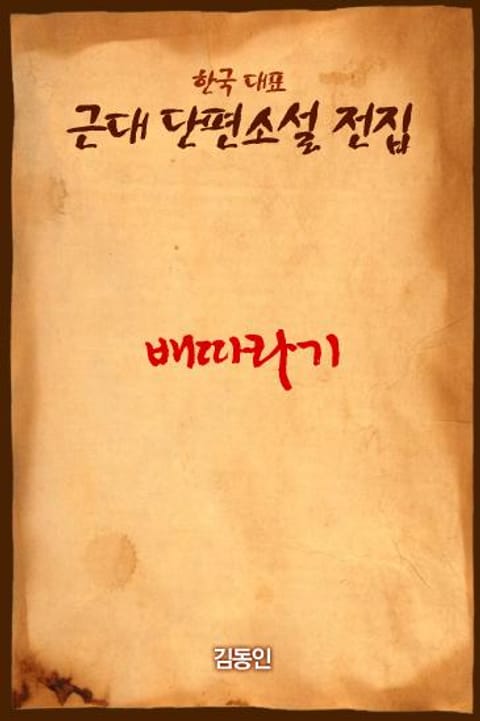 한국 대표
근대 단편소설 전집
배따라기
김동인